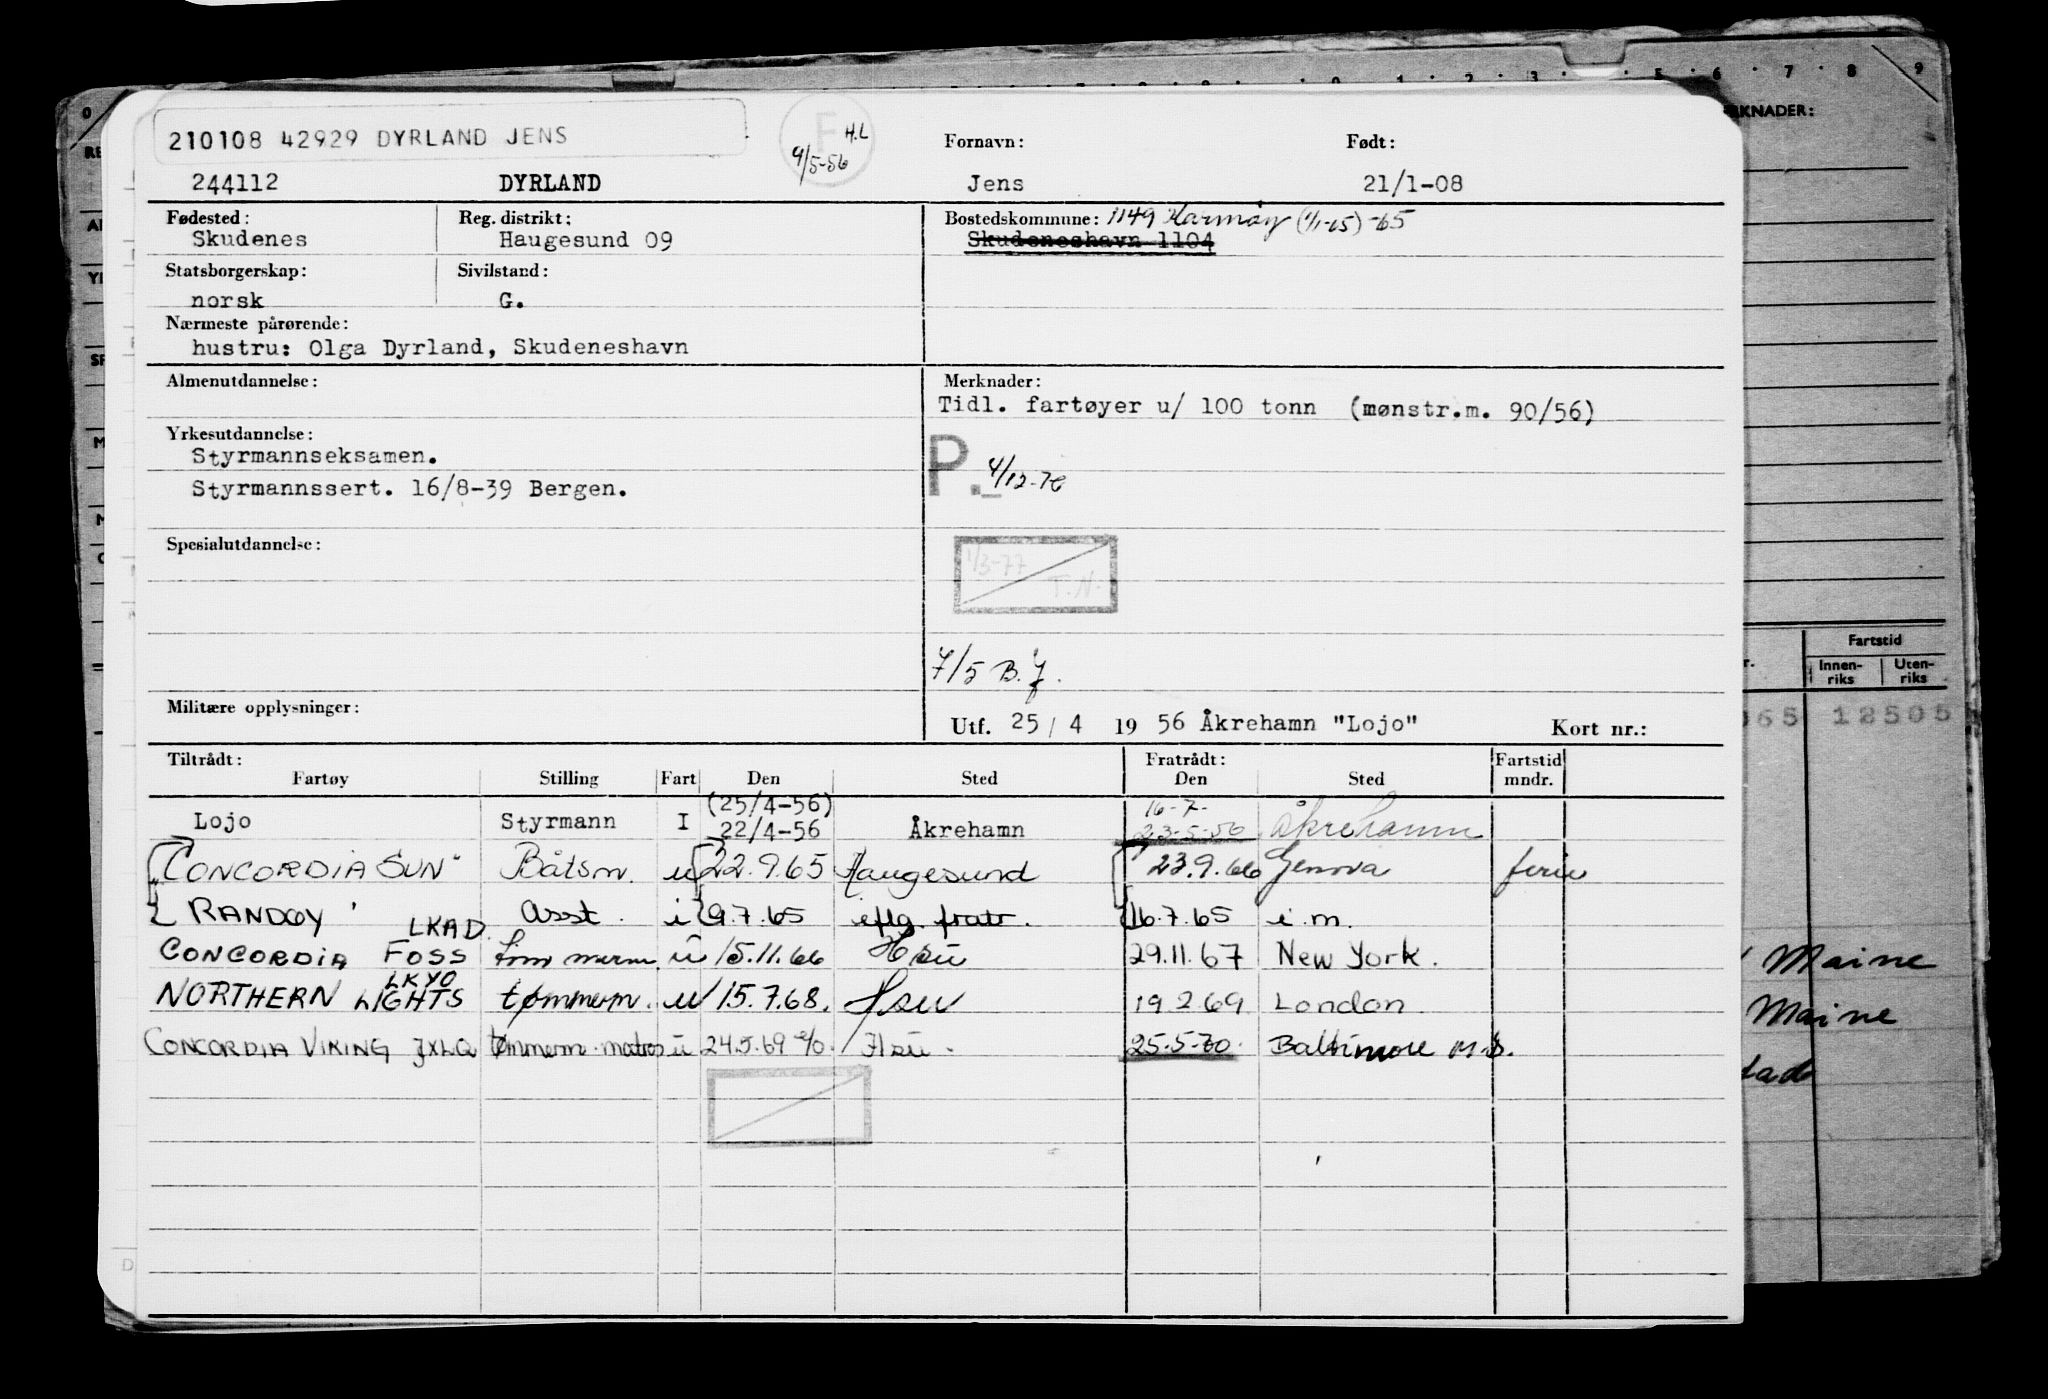 210108 42929 DYRLAND JENS
F
H.L
9/5-56
Fornavn:
Født:
244112 DYRLAND Jens 21/1-08
Fødested: Reg. distrikt: Bostedskommune: 1149 Karmøy (1/1-65) -65
Skudenes Haugesund 09 Skudeneshavn 1104
Statsborgerskap: Sivilstand:
norsk G.
Nærmeste pårørende:
hustru: Olga Dyrland, Skudeneshavn
Almenutdannelse: Merknader:
Tidl. fartøyer u/ 100 tonn (mønstr.m. 90/56)
Yrkesutdannelse:
Styrmannseksamen.
P. 4/12-70
Styrmannssert. 16/8-39 Bergen.
Spesialutdannelse:
1/3-77
T.N.
7/5 B.J.
Militære opplysninger:
Utf. 25/4 1956 Åkrehamn "Lojo" Kort nr.:
Tiltrådt: Fratrådt: Fartstid
Fartøy Stilling Fart Den Sted Den Sted mndr.
(25/4-56) 16-7-
Lojo Styrmann I 22/4-56 Åkrehamn 23-5-56 Åkrehamn
"CONCORDIA SUN" Båtsm. u 22.9.65 Haugesund 23.9.66 Genova ferie
RANDØY Asst. i 9.7.65 eflg. fratr. 16.7.65 i.m.
LKAD
CONCORDIA FOSS tømmerm. ü 15.11.66 Hsü 29.11.67 New York.
LKYO
NORTHERN LIGHTS tømmerm. u 15.7.68. Hsu 19.2.69 London
CONCORDIA VIKING JXLQ tømmerm. matros ü 24.5.69 Hsü. 25.5-70. Baltimore
KNADER:
Fartstid
Innen-riks Uten-riks
065 12505
Maine
Maine